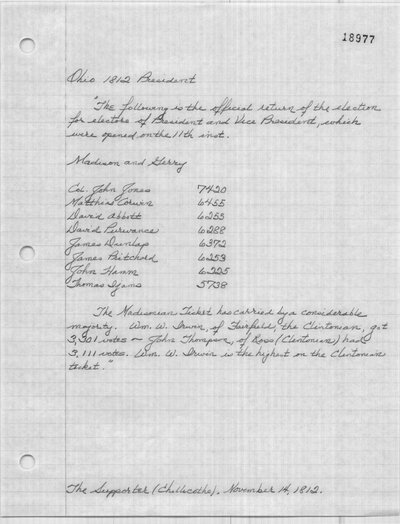 18977
Ohio 1812 President
"The following is the official return of the election
for electors of President and Vice President, which
were opened on the 11th inst.
Madison and Gerry
Col. John Jones 7420
Matthias Corwin 6455
David Abbott 6255
David Purviance 6288
James Dunlap 6372
James Pritchard 6253
John Hamm 6225
Thomas Ijams 5738
The Madisonian Ticket has carried by a considerable
majorty. Wm. W. Irwin, of Fairfield, the Clintonian, got
3,301 votes ~ John Thompson, of Ross (Clintonian) had
3,111 votes. Wm. W. Irwin is the highest on the Clintonian
ticket."
The Supporter (Chillicothe). November 14, 1812.